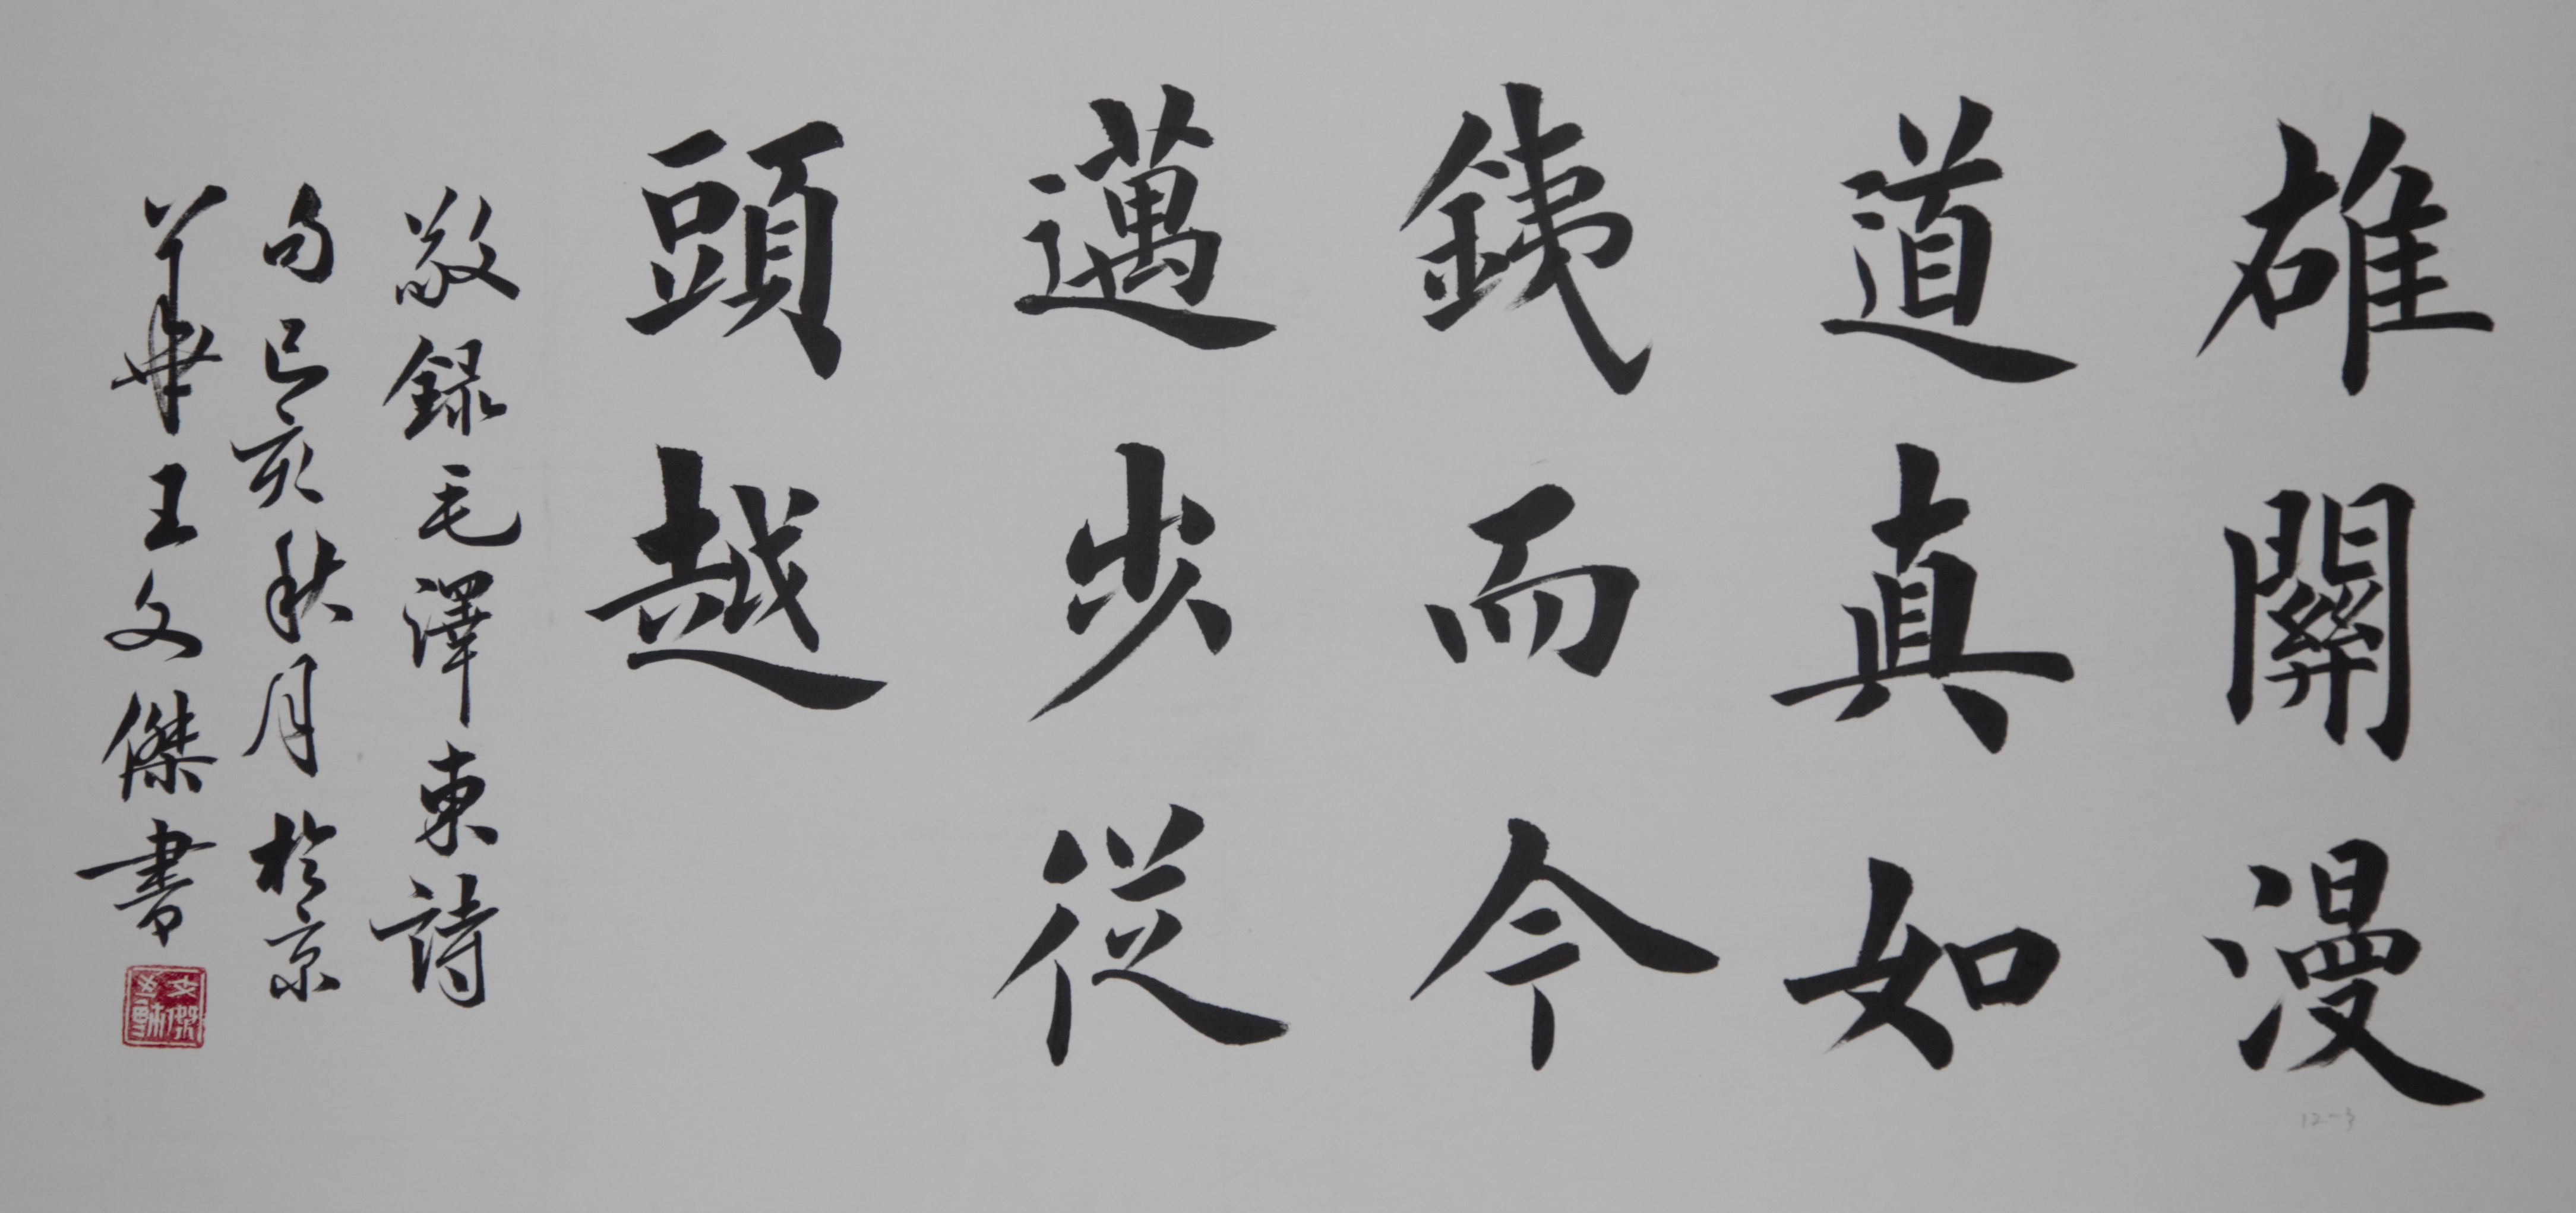 雄關漫
道真如
銕而今
邁步從
頭越
敬録毛澤東詩
句己亥秋月於京
華王文傑書
12-3